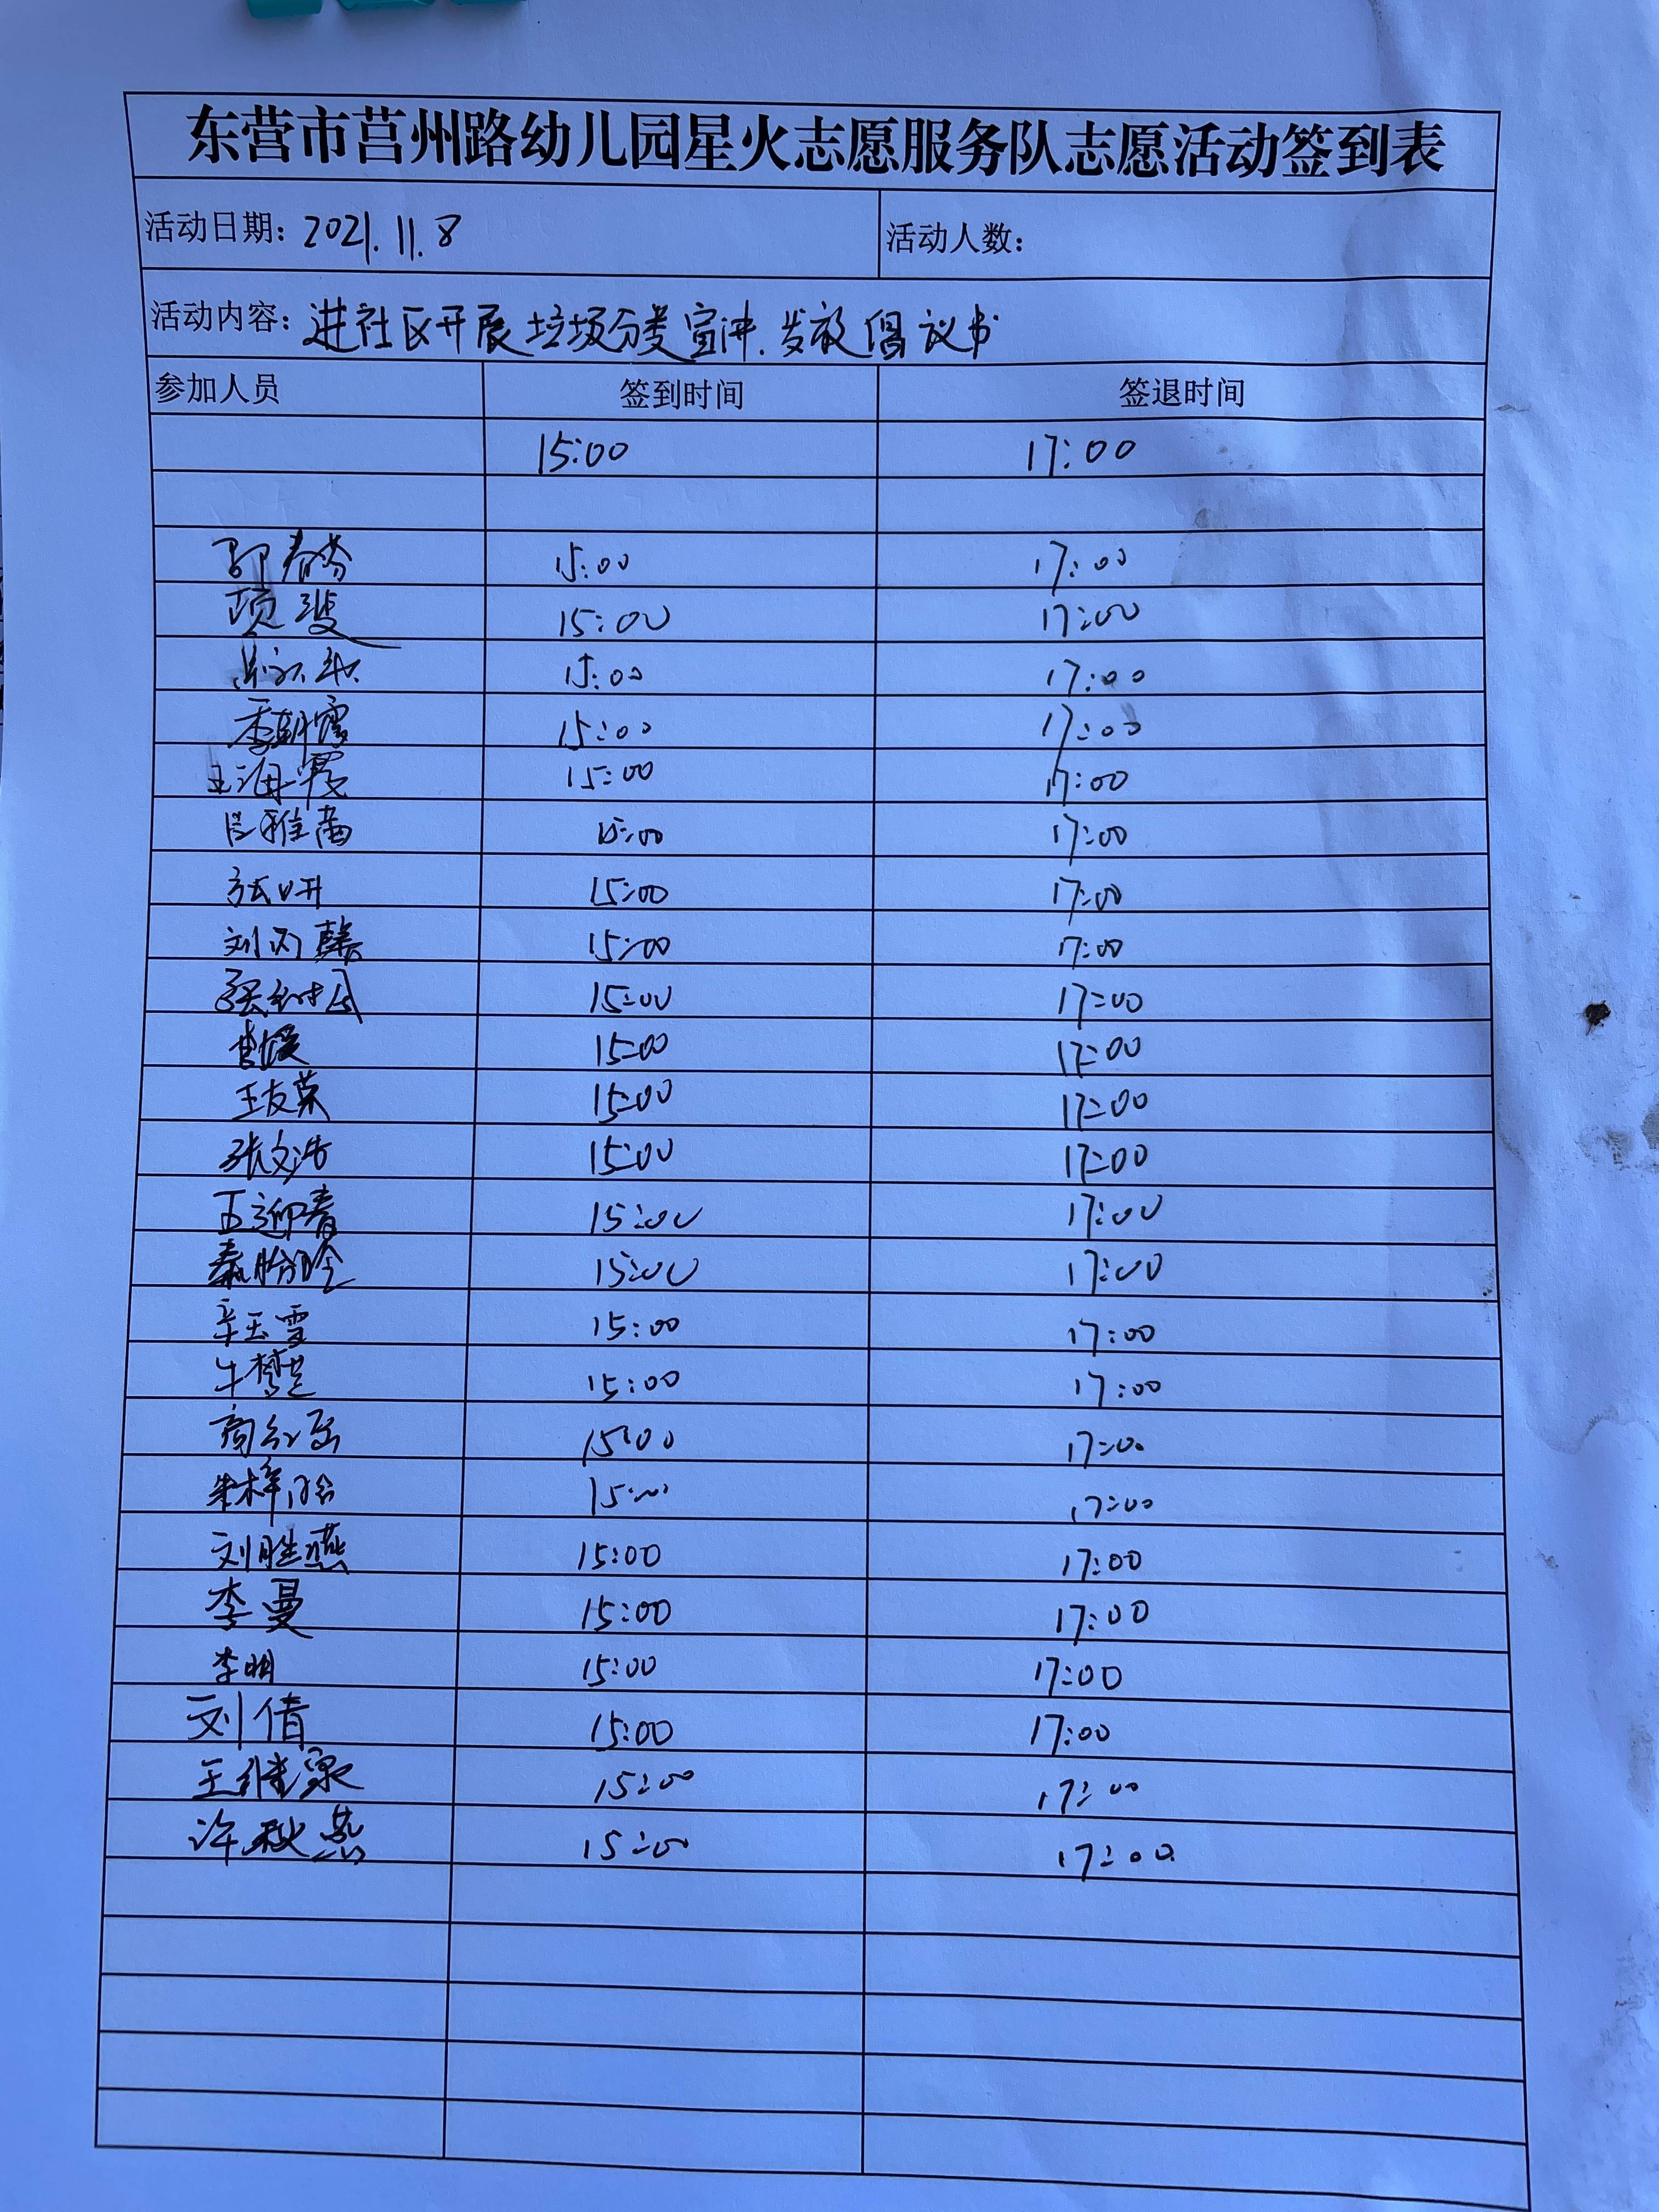 东营市莒州路幼儿园星火志愿服务队志愿活动签到表
活动日期：2021.11.8 活动人数：
活动内容：进社区开展垃圾分类宣讲、发放倡议书
参加人员 签到时间 签退时间
15:00 17:00
郭春芬 15:00 17:00
项斐 15:00 17:00
15:00 17:00
季朝霞 15:00 17:00
王海霞 15:00 17:00
吕雅茜 15:00 17:00
张妍 15:00 17:00
刘丙馨 15:00 17:00
15:00 17:00
曹媛 15:00 17:00
王友荣 15:00 17:00
张文浩 15:00 17:00
王迎春 15:00 17:00
秦盼盼 15:00 17:00
辛玉雪 15:00 17:00
牛梦芝 15:00 17:00
商红岳 15:00 17:00
朱梓晗 15:00 17:00
刘胜燕 15:00 17:00
李曼 15:00 17:00
李明 15:00 17:00
刘倩 15:00 17:00
王继泉 15:00 17:00
许秋燕 15:00 17:00